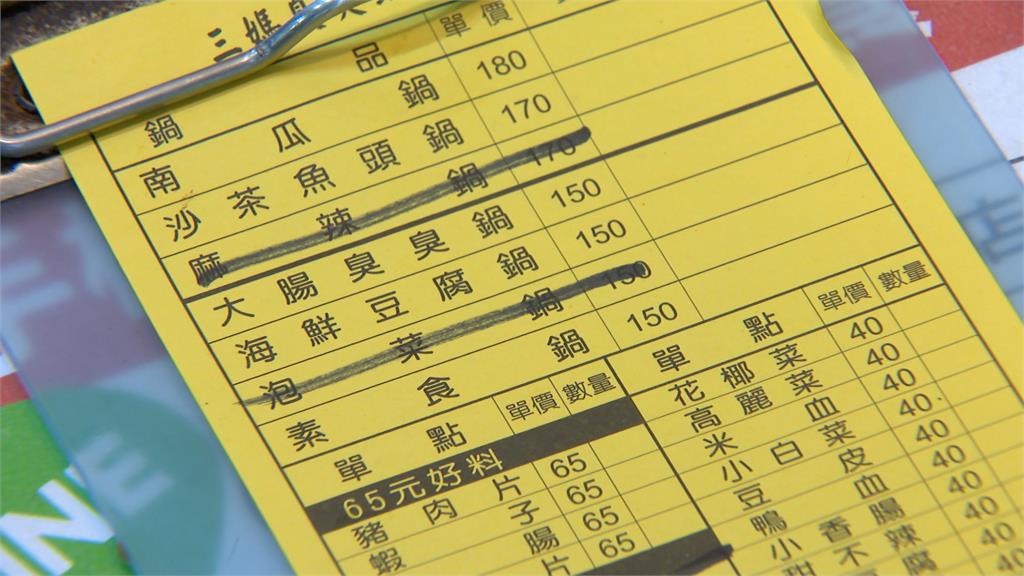 三媽臭
鍋 品 單價
南瓜鍋 180
沙茶魚頭鍋 170
麻辣鍋 170
大腸臭臭鍋 150
海鮮豆腐鍋 150
泡菜鍋 150
素食鍋 150
單點 單價 數量
65元好料
豬肉片 65
蝦 子 65
腸 65
片 65
單點 單價 數量
花椰菜 40
高麗菜 40
米血 40
小白菜 40
豆皮 40
鴨血 40
小香腸 40
甜不辣 40
腐
NE
店